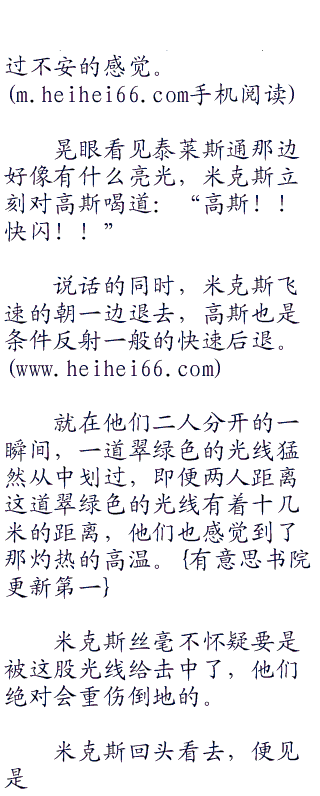 过不安的感觉。
(m.heihei66.com手机阅读)
晃眼看见泰莱斯通那边
好像有什么亮光，米克斯立
刻对高斯喝道：“高斯！！
快闪！！”
说话的同时，米克斯飞
速的朝一边退去，高斯也是
条件反射一般的快速后退。
(www.heihei66.com)
就在他们二人分开的一
瞬间，一道翠绿色的光线猛
然从中划过，即便两人距离
这道翠绿色的光线有着十几
米的距离，他们也感觉到了
那灼热的高温。{有意思书院
更新第一}
米克斯丝毫不怀疑要是
被这股光线给击中了，他们
绝对会重伤倒地的。
米克斯回头看去，便见
是